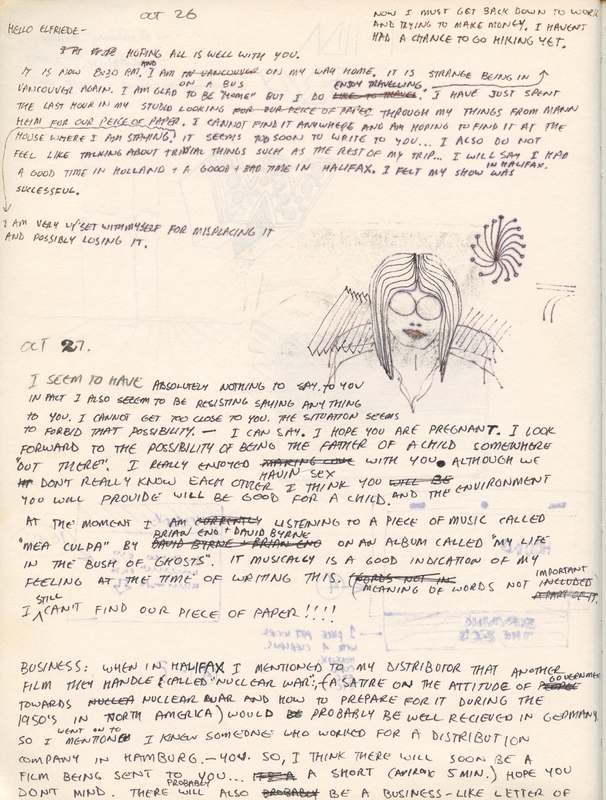 OCT 26
HELLO ELFRIEDE-
NOW I MUST GET BACK DOWN TO WORK
AND TRYING TO MAKE MONEY. I HAVENT
HAD A CHANCE TO GO HIKING YET.
I AM HOPING ALL IS WELL WITH YOU.
IT IS NOW 8:30 PM, AND I AM ON A BUS ON MY WAY HOME. IT IS STRANGE BEING IN
VANCOUVER AGAIN. I AM GLAD TO BE "HOME" BUT I DO ENJOY TRAVELLING. I HAVE JUST SPENT
THE LAST HOUR IN MY STUDIO LOOKING FOR OUR PEICE OF PAPER THROUGH MY THINGS FROM MANN
HEIM FOR OUR PEICE OF PAPER. I CANNOT FIND IT ANYWHERE AND AM HOPING TO FIND IT AT THE
HOUSE WHERE I AM STAYING. IT SEEMS TOO SOON TO WRITE TO YOU... I ALSO DO NOT
FEEL LIKE TALKING ABOUT TRIVIAL THINGS SUCH AS THE REST OF MY TRIP... I WILL SAY I HAD
A GOOD TIME IN HOLLAND + A GOOD + BAD TIME IN HALIFAX. I FELT MY SHOW IN HALIFAX WAS
SUCCESSFUL.
I AM VERY UPSET WITH MYSELF FOR MISPLACING IT
AND POSSIBLY LOSING IT.
OCT 27.
I SEEM TO HAVE ABSOLUTELY NOTHING TO SAY TO YOU
IN FACT I ALSO SEEEM TO BE RESISTING SAYING ANYTHING
TO YOU. I CANNOT GET TOO CLOSE TO YOU. THE SITUATION SEEMS
TO FORBID THAT POSSIBILITY. — I CAN SAY. I HOPE YOU ARE PREGNANT. I LOOK
FORWARD TO THE POSSIBILITY OF BEING THE FATHER OF A CHILD SOMEWHERE
"OUT THERE". I REALLY ENJOYED MAKING LOVE HAVIN SEX WITH YOU. ALTHOUGH WE
DONT REALLY KNOW EACH OTHER I THINK YOU WILL BE AND THE ENVIRONMENT
YOU WILL PROVIDE WILL BE GOOD FOR A CHILD.
AT THE MOMENT I AM CURRENTLY LISTENING TO A PIECE OF MUSIC CALLED
"MEA CULPA" BY BRIAN ENO + DAVID BYRNE DAVID BYRNE + BRIAN ENO ON AN ALBUM CALLED "MY LIFE
IN THE BUSH OF GHOSTS". IT MUSICALLY IS A GOOD INDICATION OF MY
FEELING AT THE TIME OF WRITING THIS. (WORDS NOT IN MEANING OF WORDS NOT IMPORTANT INCLUDED
A PART OF IT.
I STILL CAN'T FIND OUR PIECE OF PAPER !!!!
BUSINESS: WHEN IN HALIFAX I MENTIONED TO MY DISTRIBUTOR THAT ANOTHER
FILM THEY HANDLE (CALLED "NUCLEAR WAR", (A SATIRE ON THE ATTITUDE OF PEOPLE GOVERNMEN
TOWARDS NUCLEA NUCLEAR WAR AND HOW TO PREPARE FOR IT DURING THE
1950'S IN NORTH AMERICA) WOULD BE PROBABLY BE WELL RECIEVED IN GERMANY.
SO I WENT ON TO MENTION I KNEW SOMEONE WHO WORKED FOR A DISTRIBUTION
COMPANY IN HAMBURG. — YOU. SO, I THINK THERE WILL SOON BE A
FILM BEING SENT TO YOU... A SHORT (APIROX 5 MIN.) HOPE YOU
DONT MIND. THERE WILL PROBABLY ALSO PROBABLY BE A BUSINESS-LIKE LETTER OF